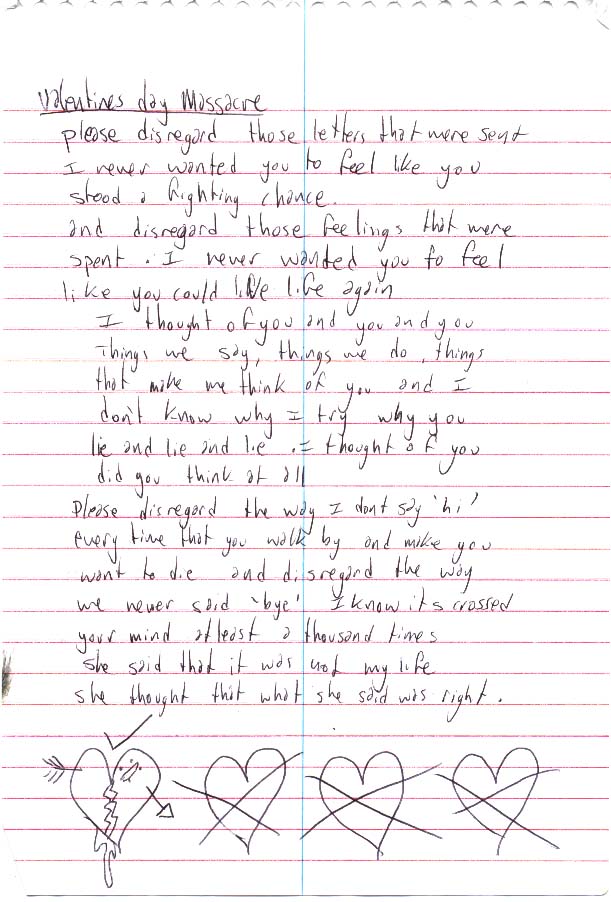 Valentines day Massacre
please disregard those letters that were sent
I never wanted you to feel like you
stood a fighting chance.
and disregard those feelings that were
spent. I never wanted you to feel
like you could live life again
I thought of you and you and you
Things we say, things we do, things
that make me think of you and I
don't know why I try why you
lie and lie and lie. I thought of you
did you think at all
Please disregard the way I dont say 'hi'
every time that you walk by and make you
want to die and disregard the way
we never said 'bye' I know its crossed
your mind atleast a thousand times
she said that it was not my life
she thought that what she said was right.